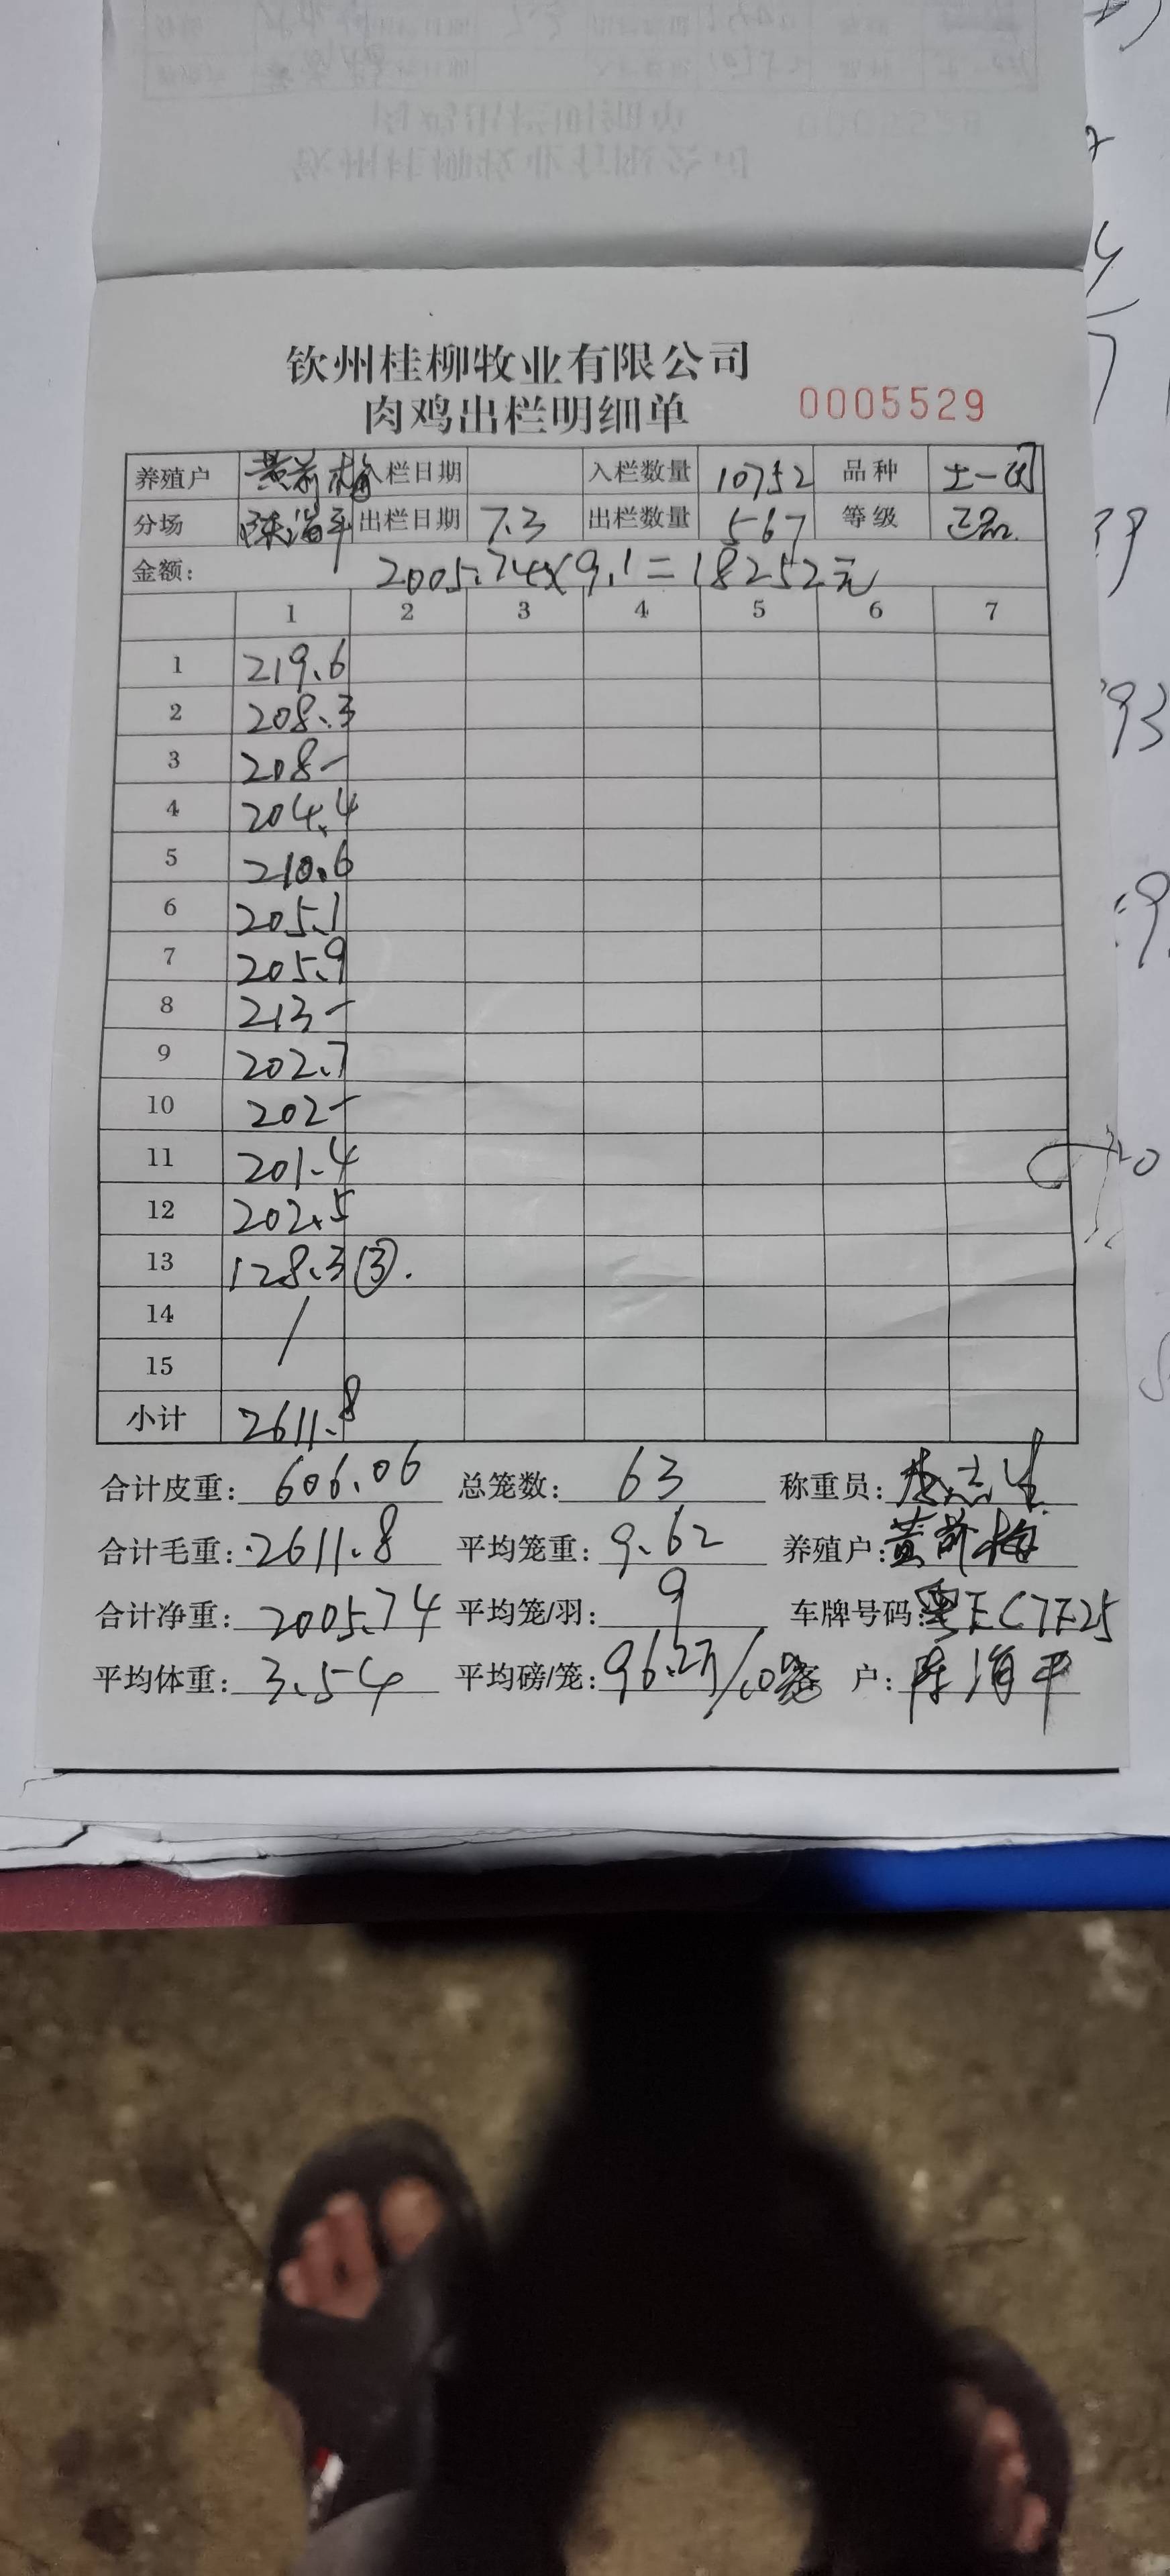 钦州桂柳牧业有限公司
肉鸡出栏明细单 0005529
养殖户 黄前梅 入栏日期 入栏数量 10752 品种 土一
分场 陈海平 出栏日期 7.3 出栏数量 567 等级 正品
金额: 2005.74×9.1=18252元
1 2 3 4 5 6 7
1 219.6
2 208.3
3 208-
4 204.4
5 210.6
6 205.1
7 205.9
8 213-
9 202.7
10 202-
11 201.4
12 202.5
13 128.3③.
14 /
15
小计 2611.8
合计皮重: 606.06 总笼数: 63 称重员:
合计毛重: 2611.8 平均笼重: 9.62 养殖户: 黄前梅
合计净重: 2005.74 平均笼/羽: 9 车牌号码: 粤EC7F25
平均体重: 3.54 平均磅/笼: 96.2斤/10笼 户: 陈海平